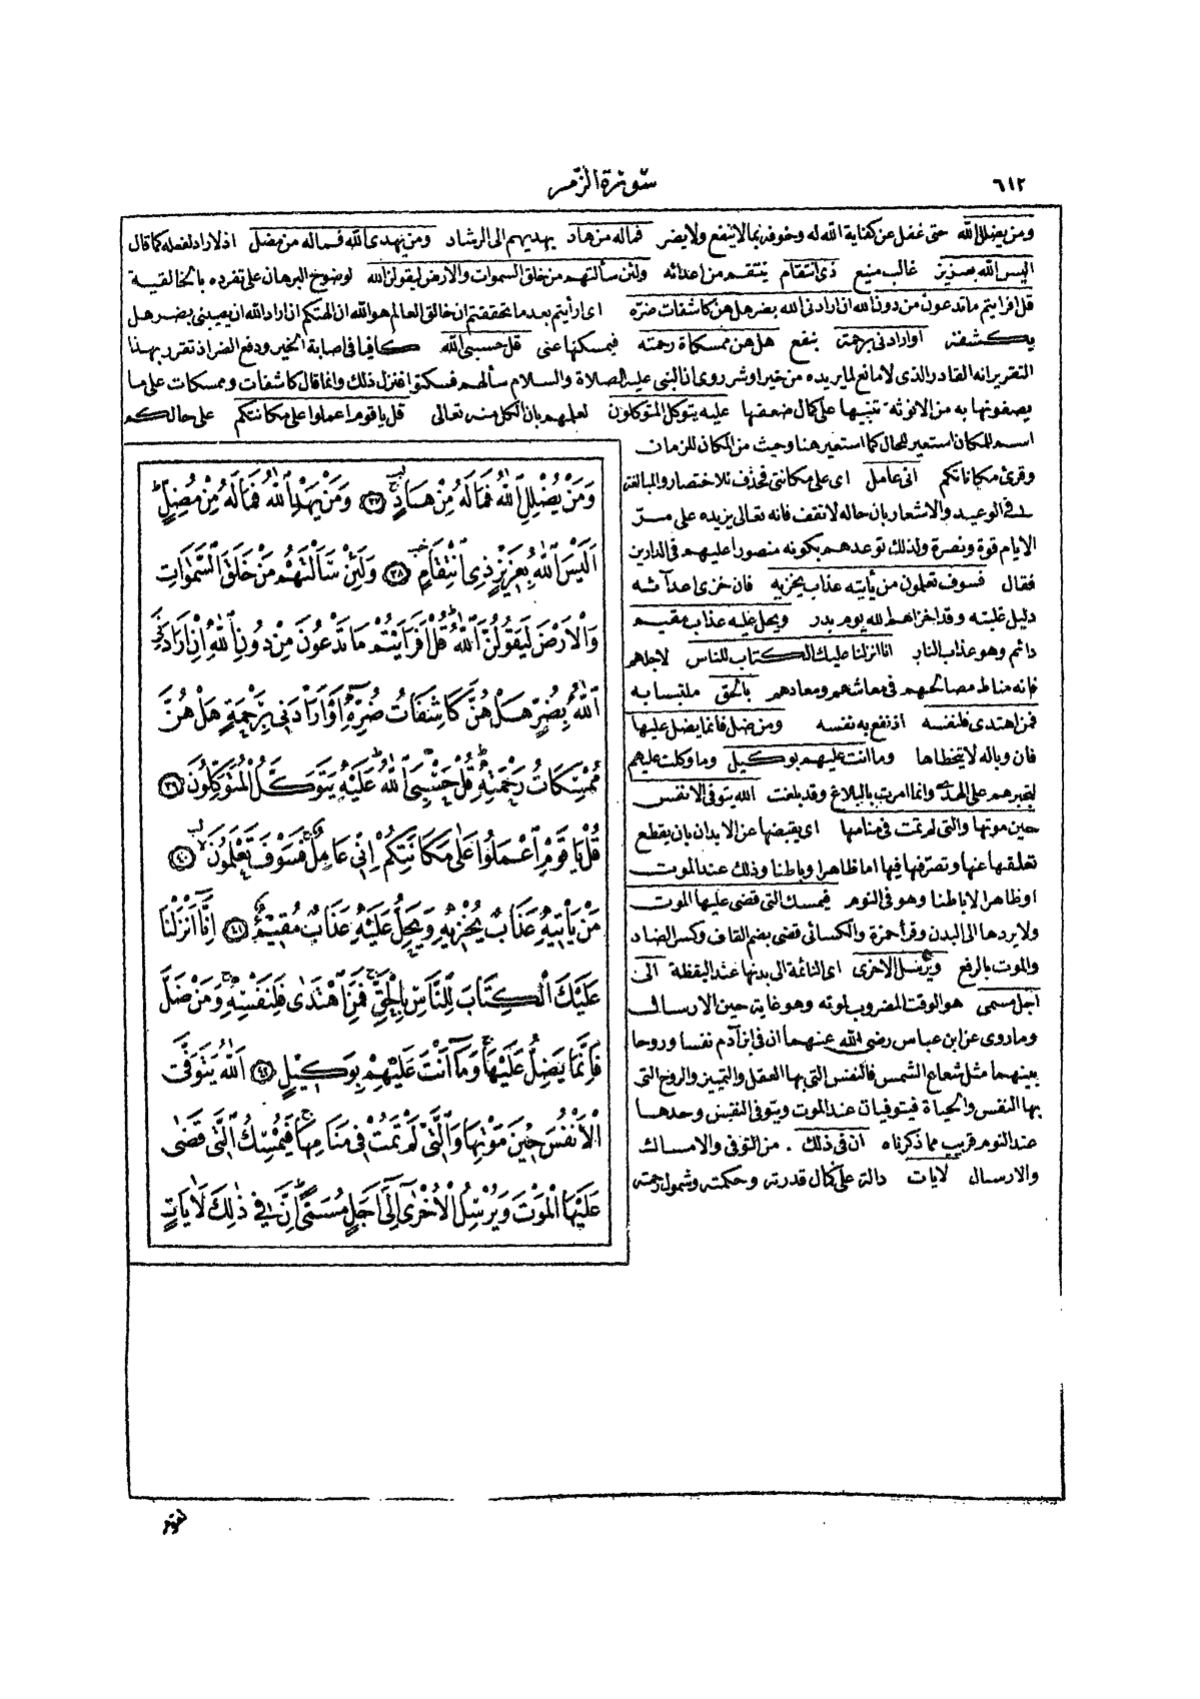 ٦١٢
سورة الزمر
ومن يضلل الله حتى غفل عن كفاية الله له وخوفه بما لا ينفع ولا يضر فماله من هاد يهديهم الى الرشاد ومن يهدى الله فماله من مضل اذ لا راد لفعله كما قال
اليس الله بعزيز غالب منيع ذى انتقام ينتقم من اعدائه ولئن سألتهم من خلق السموات والارض ليقولن الله لوضوح البرهان على تفرده بالخالقية
قل افرايتم ما تدعون من دون الله ان ارادنى الله بضر هل هن كاشفات ضره اى ارأيتم بعد ما تحققتم ان خالق العالم هو الله ان الهتكم ان اراد الله ان يصيبنى بضر هل
يكشفنه او ارادنى برحمة بنفع هل هن ممسكاة رحمته فيمسكنها عنى قل حسبى الله كافيا فى اصابة الخير ودفع الضر اذ تقرر بهذا
التقرير انه القادر الذى لا مانع لما يريده من خير او شر روى ان النبى عليه الصلاة والسلام سألهم فسكتوا فنزل ذلك وانما قال كاشفات وممسكات على ما
يصفونها به من الانوثة تنبيها على كمال ضعفها عليه يتوكل المتوكلون لعلمهم بان الكل منه تعالى قل يا قوم اعملوا على مكانتكم على حالكم
اسم للمكان استعير للحال كما استعير هنا وحيث من المكان للزمان
وقرئ مكاناتكم انى عامل اى على مكانتى فحذف للاختصار والمبالغة
فى الوعيد والاشعار بان حاله لا تقف فانه تعالى يزيده على مر
الايام قوة ونصرة ولذلك توعدهم بكونه منصورا عليهم فى الدارين
فقال فسوف تعلمون من يأتيه عذاب يخزيه فان خزى اعدائه
دليل غلبته وقد اخزاهم الله يوم بدر ويحل عليه عذاب مقيم
دائم وهو عذاب النار انا انزلنا عليك الكتاب للناس لاجلهم
فانه مناط مصالحهم فى معاشهم ومعادهم بالحق ملتبسا به
فمن اهتدى فلنفسه اذ نفع به نفسه ومن ضل فانما يضل عليها
فان وباله لا يتخطاها وما انت عليهم بوكيل وما وكلت عليهم
لتجبرهم على الهدى وانما امرت بالبلاغ وقد بلغت الله يتوفى الانفس
حين موتها والتى لم تمت فى منامها اى يقبضها عن الابدان بان يقطع
تعلقها عنها وتصرفها فيها اما ظاهرا وباطنا وذلك عند الموت
او ظاهرا لا باطنا وهو فى النوم فيمسك التى قضى عليها الموت
ولا يردها الى البدن وقرأ حمزة والكسائى قضى بضم القاف وكسر الضاد
والموت بالرفع ويرسل الاخرى اى النائمة الى بدنها عند اليقظة الى
اجل مسمى هو الوقت المضروب لموته وهو غاية حين الارسال
وما روى عن ابن عباس رضى الله عنهما ان فى ابن آدم نفسا وروحا
بينهما مثل شعاع الشمس فالنفس التى بها العقل والتمييز والروح التى
بها النفس والحياة فيتوفيان عند الموت ويتوفى النفس وحدها
عند النوم قريب مما ذكرناه ان فى ذلك . من التوفى والامساك
والارسال لآيات دالة على كمال قدرته وحكمته وشمول رحمته
وَمَنْ يُضْلِلِ اللّٰهُ فَمَا لَهُ مِنْ هَادٍ ٣٧ وَمَنْ يَهْدِ اللّٰهُ فَمَا لَهُ مِنْ مُضِلٍّ
اَلَيْسَ اللّٰهُ بِعَزِيزٍ ذِى انْتِقَامٍ ٣٨ وَلَئِنْ سَاَلْتَهُمْ مَنْ خَلَقَ السَّمٰوَاتِ
وَالْاَرْضَ لَيَقُولُنَّ اللّٰهُ قُلْ اَفَرَاَيْتُمْ مَا تَدْعُونَ مِنْ دُونِ اللّٰهِ اِنْ اَرَادَنِىَ
اللّٰهُ بِضُرٍّ هَلْ هُنَّ كَاشِفَاتُ ضُرِّهِ اَوْ اَرَادَنِى بِرَحْمَةٍ هَلْ هُنَّ
مُمْسِكَاتُ رَحْمَتِهِ قُلْ حَسْبِىَ اللّٰهُ عَلَيْهِ يَتَوَكَّلُ الْمُتَوَكِّلُونَ ٣٩
قُلْ يَا قَوْمِ اعْمَلُوا عَلٰى مَكَانَتِكُمْ اِنِّى عَامِلٌ فَسَوْفَ تَعْلَمُونَ ٤٠
مَنْ يَاْتِيهِ عَذَابٌ يُخْزِيهِ وَيَحِلُّ عَلَيْهِ عَذَابٌ مُقِيمٌ ٤١ اِنَّا اَنْزَلْنَا
عَلَيْكَ الْكِتَابَ لِلنَّاسِ بِالْحَقِّ فَمَنِ اهْتَدٰى فَلِنَفْسِهِ وَمَنْ ضَلَّ
فَاِنَّمَا يَضِلُّ عَلَيْهَا وَمَا اَنْتَ عَلَيْهِمْ بِوَكِيلٍ ٤٢ اَللّٰهُ يَتَوَفَّى
الْاَنْفُسَ حِينَ مَوْتِهَا وَالَّتِى لَمْ تَمُتْ فِى مَنَامِهَا فَيُمْسِكُ الَّتِى قَضٰى
عَلَيْهَا الْمَوْتَ وَيُرْسِلُ الْاُخْرٰى اِلٰى اَجَلٍ مُسَمًّى اِنَّ فِى ذٰلِكَ لَاٰيَاتٍ
لقوم